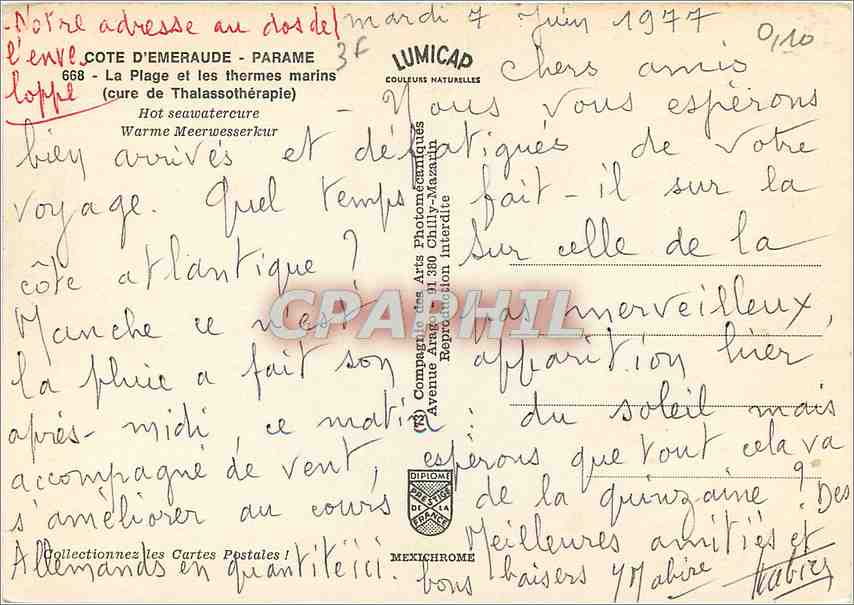 - Notre adresse au dos de l
l'enve
loppe
mardi 7 Juin 1977
0,10
3F
COTE D'EMERAUDE - PARAME
668 - La Plage et les thermes marins
(cure de Thalassothérapie)
Hot seawatercure
Warme Meerwesserkur
LUMICAP
COULEURS NATURELLES
chers amis
- Nous vous espérons
bien arrivés et défatigués de votre
voyage. Quel temps fait-il sur la
côte atlantique ? Sur celle de la
Manche ce n'est pas merveilleux,
la pluie a fait son apparition hier
après-midi, ce matin : du soleil mais
accompagné de vent, espérons que tout cela va
s'améliorer au cours de la quinzaine ? Des
Allemands en quantité ici. Meilleures amitiés et
bons baisers
(73) Compagnie des Arts Photomécaniques
Avenue Arago - 91 380 Chilly-Mazarin
Reproduction interdite
CPAPHIL
DIPLOME
PRESTIGE
DE LA
FRANCE
Collectionnez les Cartes Postales !
MEXICHROME